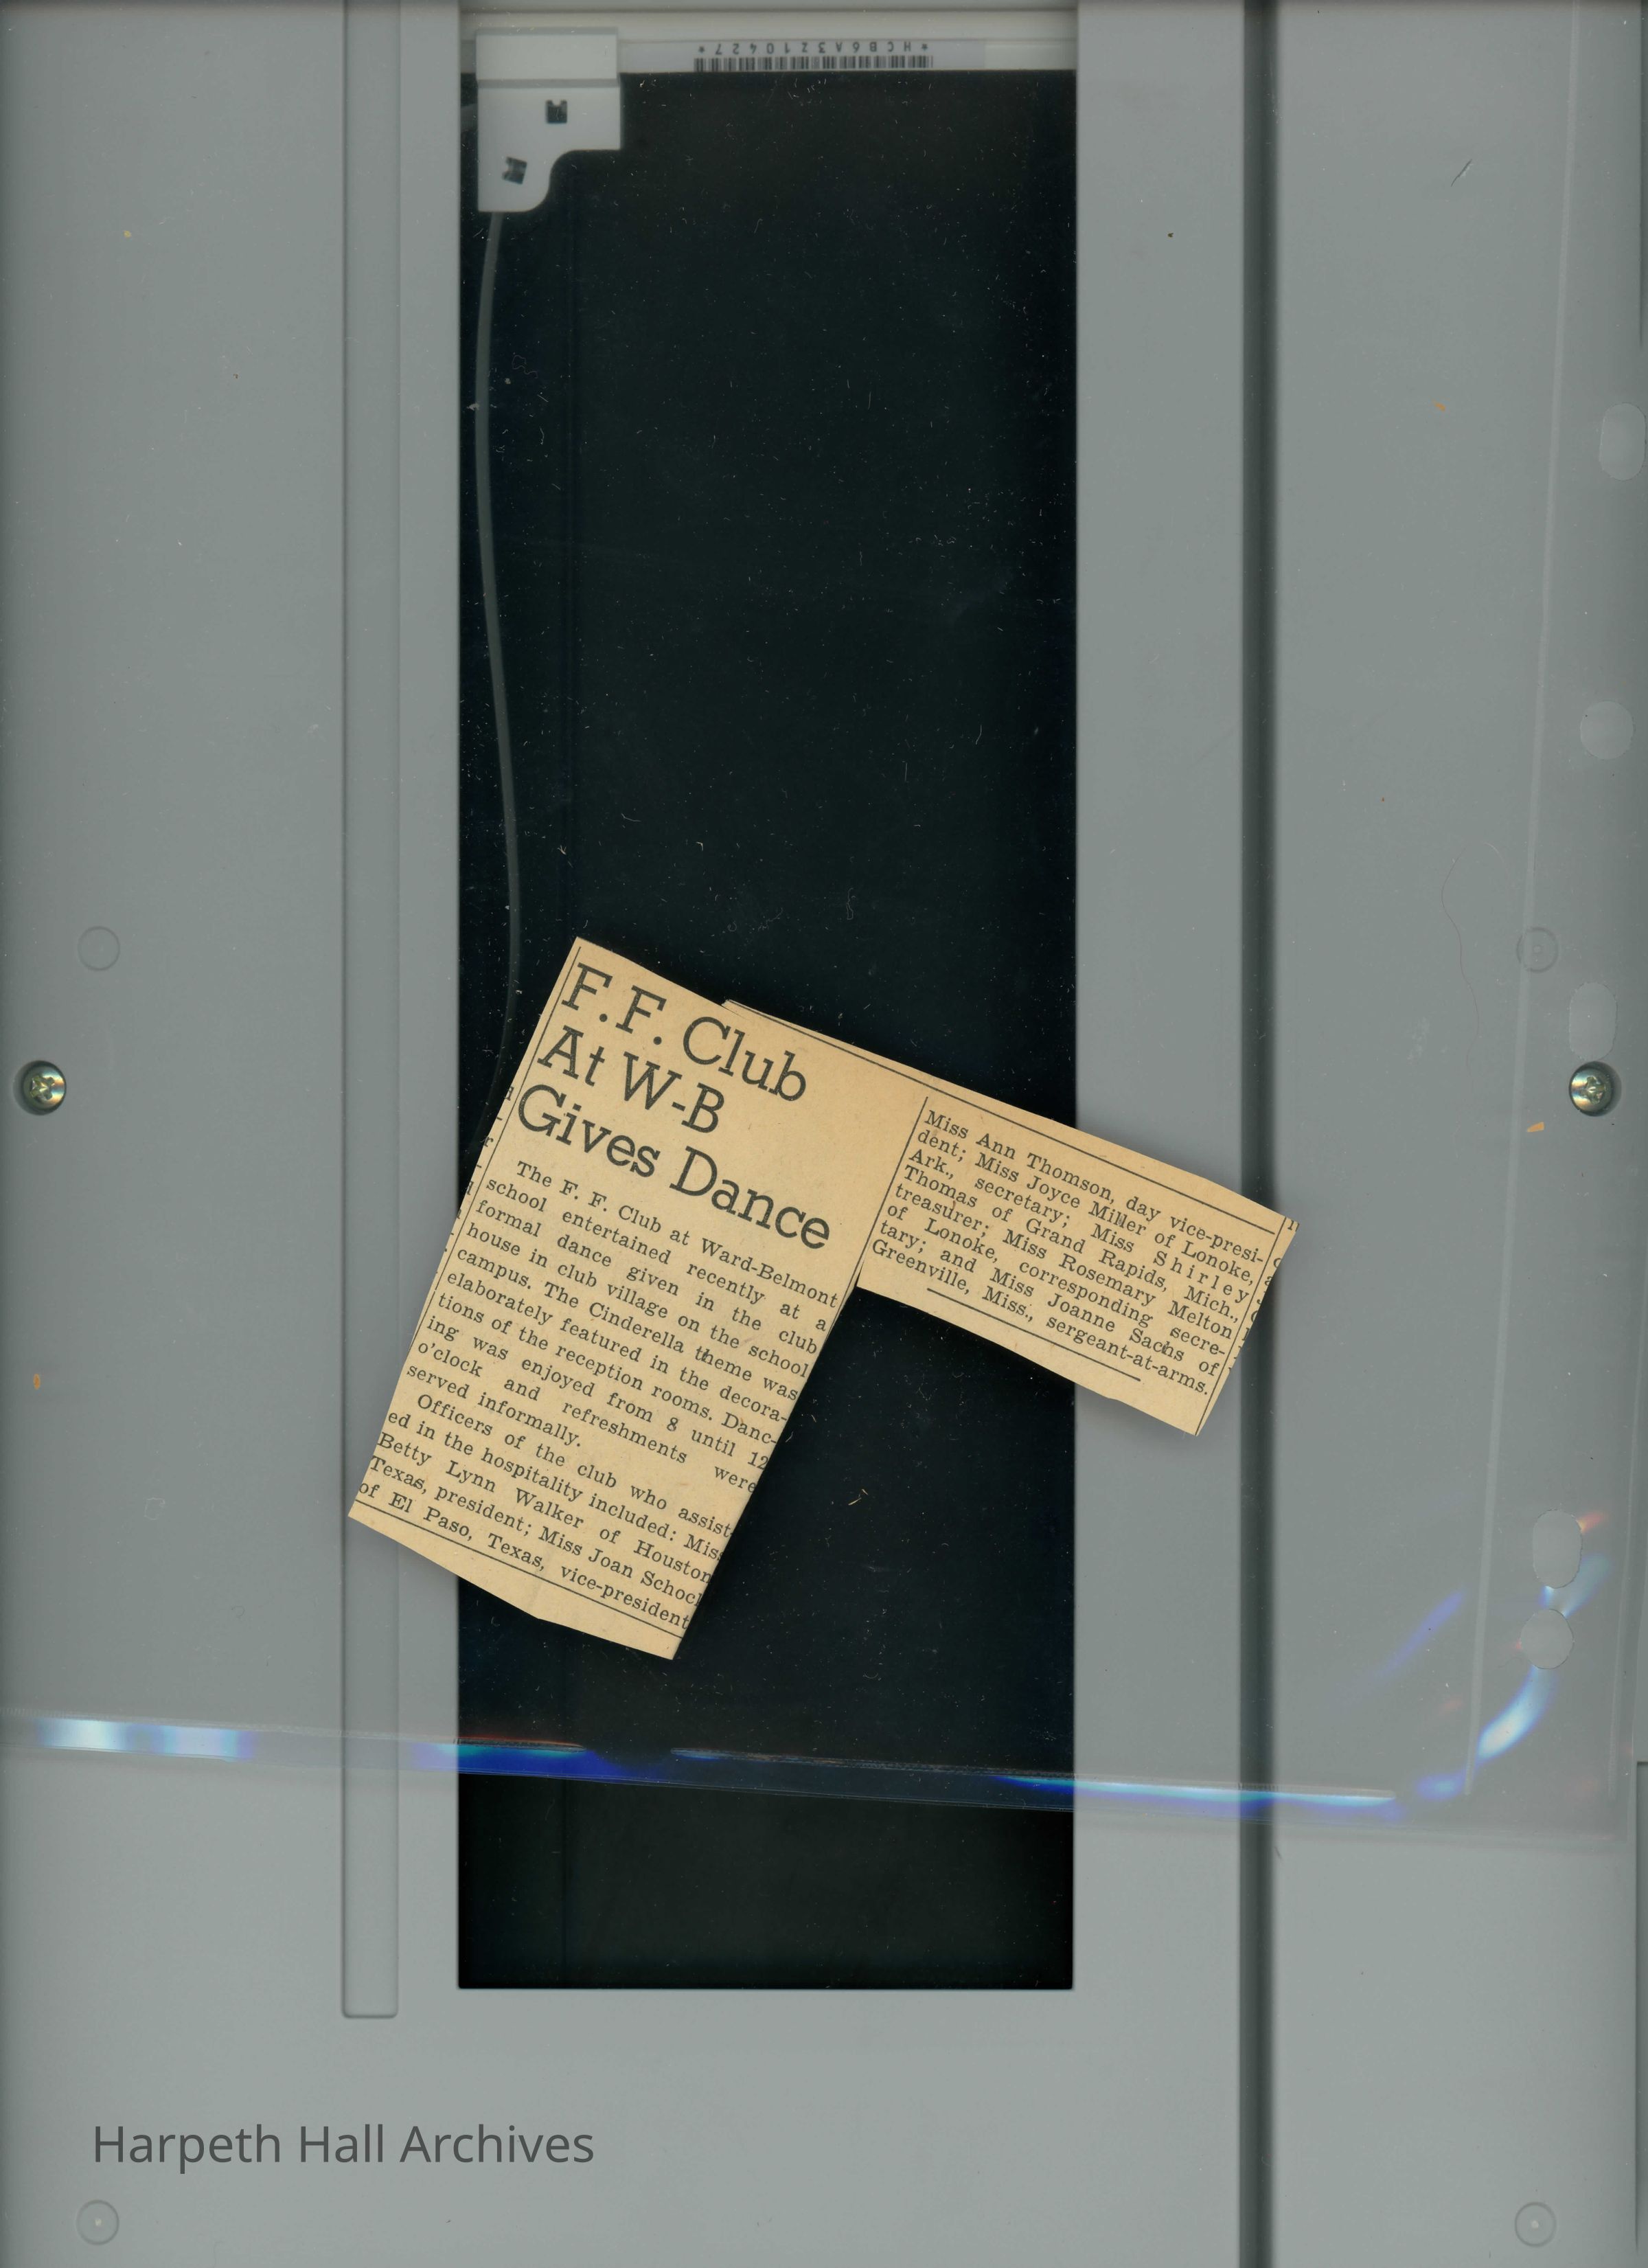 *HCB6A3Z10427*
F.F. Club
At W-B
Gives Dance
The F. F. Club at Ward-Belmont
school entertained recently at a
formal dance given in the club
house in club village on the school
campus. The Cinderella theme was
elaborately featured in the decora-
tions of the reception rooms. Danc-
ing was enjoyed from 8 until 12
o'clock and refreshments were
served informally.
Officers of the club who assist-
ed in the hospitality included: Miss
Betty Lynn Walker of Houston
Texas, president; Miss Joan Schoc
of El Paso, Texas, vice-president
Miss Ann Thomson, day vice-presi-
dent; Miss Joyce Miller of Lonoke,
Ark., secretary; Miss Shirley
Thomas of Grand Rapids, Mich.,
treasurer; Miss Rosemary Melton
of Lonoke, corresponding secre-
tary; and Miss Joanne Sachs of
Greenville, Miss., sergeant-at-arms.
Harpeth Hall Archives